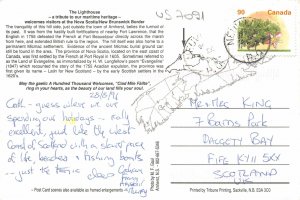 The Lighthouse
– a tribute to our maritime heritage –
welcomes visitors at the Nova Scotia/New Brunswick Border
The tranquility of this hill side, just outside the town of Amherst, belies the turmoil of
its past. It was from the nearby built fortifications of nearby Fort Lawrence, that the
English in 1755 rebuffed the French at Fort Beausejour directly across the marsh
from here, and extended British rule to the region. The hill itself was also home to a
permanent Micmac settlement. Evidence of the ancient Micmac burial ground
still be found in the area. The province of Nova Scotia, located on the east coast of
Canada, was first settled by the French at Port Royal in 1605. Sometimes referred to
as the Land of Evangeline, as immortalized by H. W. Longfellow's poem "Evangeline"
(1847) which recounted the story of the 1755 Acadian expulsion, the province was
first given its name – Latin for New Scotland – by the early Scottish settlers in the
1620's.
May the gaelic A Hundred Thousand Welcomes, "Ciad Mile Failte"
ring in your hearts, as the beauty of our land fills your soul.
28/5/96
Cath – guess where we are
spending our holidays –
excellent, just like the West
Coast of Scotland with a
of the beaches & fishing boats
– just the
Love Graham
- Post Card scenes also available as framed enlargements -
Photo by M.
Amherst, N.S.
Canada
90
MERTLE KING
7 BARNS PARK
DALGETY BAY
FIFE KY11 5XY
SCOTLAND
Published by Tribune Printing, Sackville, N.B. E0A 3C0